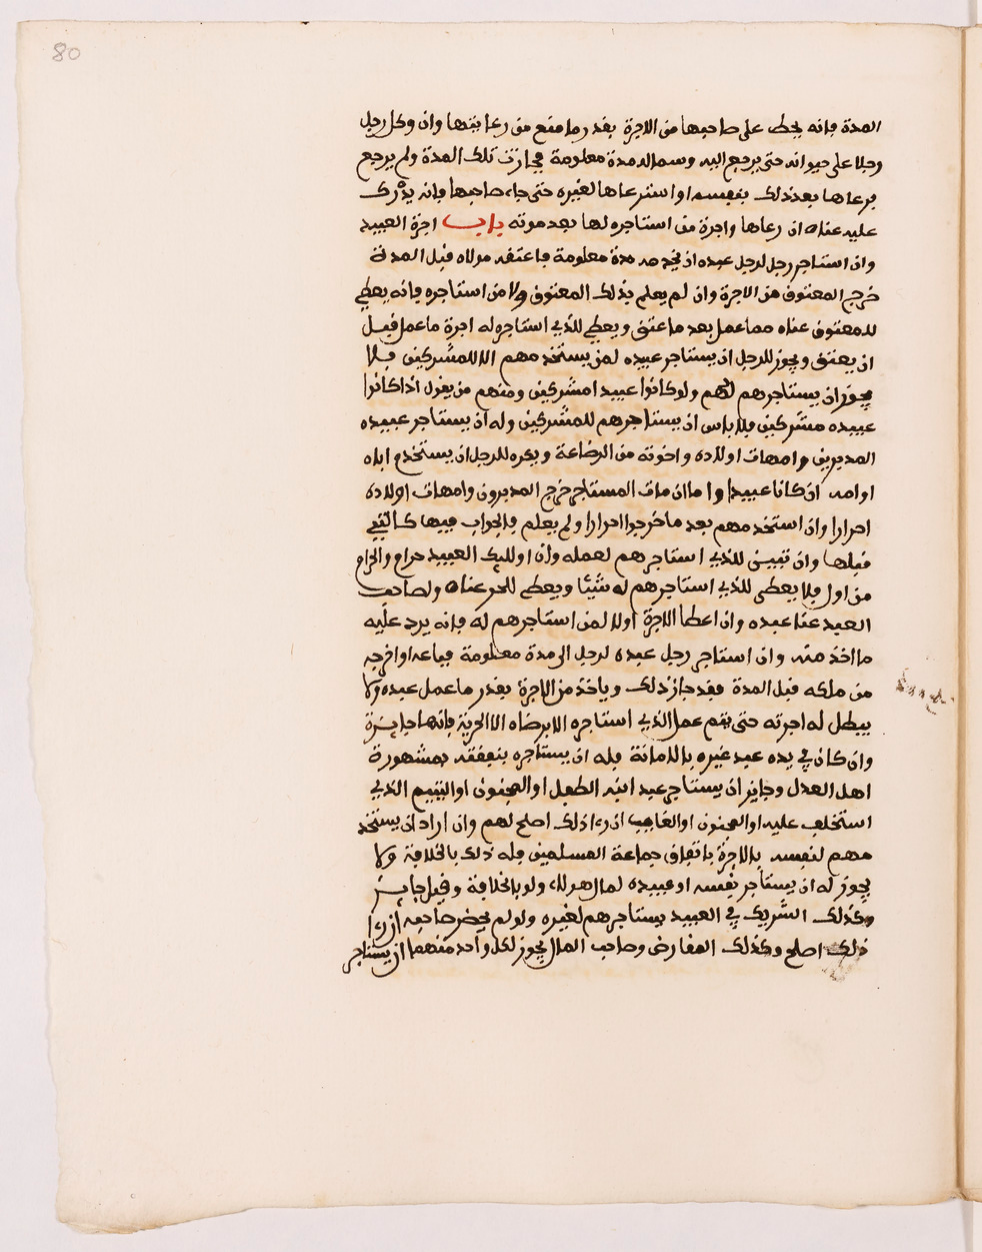 80
المدة فانه يحط على صاحبها من الاجرة بقدر ما منع من رعايتها وان وكل رجل
رجلا على حيوانه حتى يرجع اليه وسما له مدة معلومة فجازت تلك المدة ولم يرجع
فرعاها بعد ذلك بنفسه او استرعاها لغيره حتى جاء صاحبها فانه يدرك
عليه عناه ان رعاها واجرة من استاجره لها بعد موته باب اجرة العبيد
وان استاجر رجل لرجل عبده ان يخدمه مدة معلومة فاعتقه مولاه قبل المدة
خرج المعتوق من الاجرة وان لم يعلم بذلك المعتوق ولا من استاجره فانه يعطي
للمعتوق عناه مما عمل بعد ما عتق ويعطي للذي استاجره له اجرة ما عمل قبل
ان يعتق ويجوز للرجل ان يستاجر عبيده لمن يستخدمهم الا للمشركين فلا
يجوز ان يستاجرهم لهم ولو كانوا عبيدا مشركين ومنهم من يقول اذا كانوا
عبيده مشركين فلا باس ان يستاجرهم للمشركين وله ان يستاجر عبيده
المدبرين وامهات اولاده واخوته من الرضاعة ويكره للرجل ان يستخدم اباه
او امه ان كانا عبيدا واما ان مات المستاجر خرج المدبرون وامهات اولاده
احرارا وان استخدمهم بعد ما خرجوا احرارا ولم يعلم فالجواب فيها كالتي
قبلها وان تبين للذي استاجرهم لعمله وان اولليك العبيد حرام والحرام
من اول فلا يعطى للذي استاجرهم له شيئا ويعطي للحر عناه ولصاحب
العبد عنا عبده وان اعطا الاجرة اولا لمن استاجرهم له فانه يرد عليه
ما اخذ منه وان استاجر رجل عبده لرجل الى مدة معلومة فباعه او اخرجه
من ملكه قبل المدة فقد جاز ذلك وياخذ من الاجرة بقدر ما عمل عبده ولا
يبطل له اجرته حتى يتم عمل الذي استاجره الا برضاه الا الحرية فانها جايزة
وان كان في يده عبد غيره بالامانة فله ان يستاجره بنفقته بمشهورة
اهل العدل وجايز ان يستاجر عبد ابنه الطفل او المجنون او اليتيم الذي
استخلف عليه او المجنون او الغايب ان رءا ذلك اصلح لهم وان اراد ان يستخد
مهم لنفسه بالاجرة باتفاق جماعة المسلمين فله ذلك بالخلافة ولا
يجوز له ان يستاجر نفسه او عبيده لمال هولاء ولو بالخلافة وقيل جايز
وكذلك الشريك في العبيد يستاجرهم لغيره ولو لم يحضر صاحبه ان رءا
ذلك اصلح وكذلك المقارض وصاحب المال يجوز لكل واحد منهما ان يستاجر